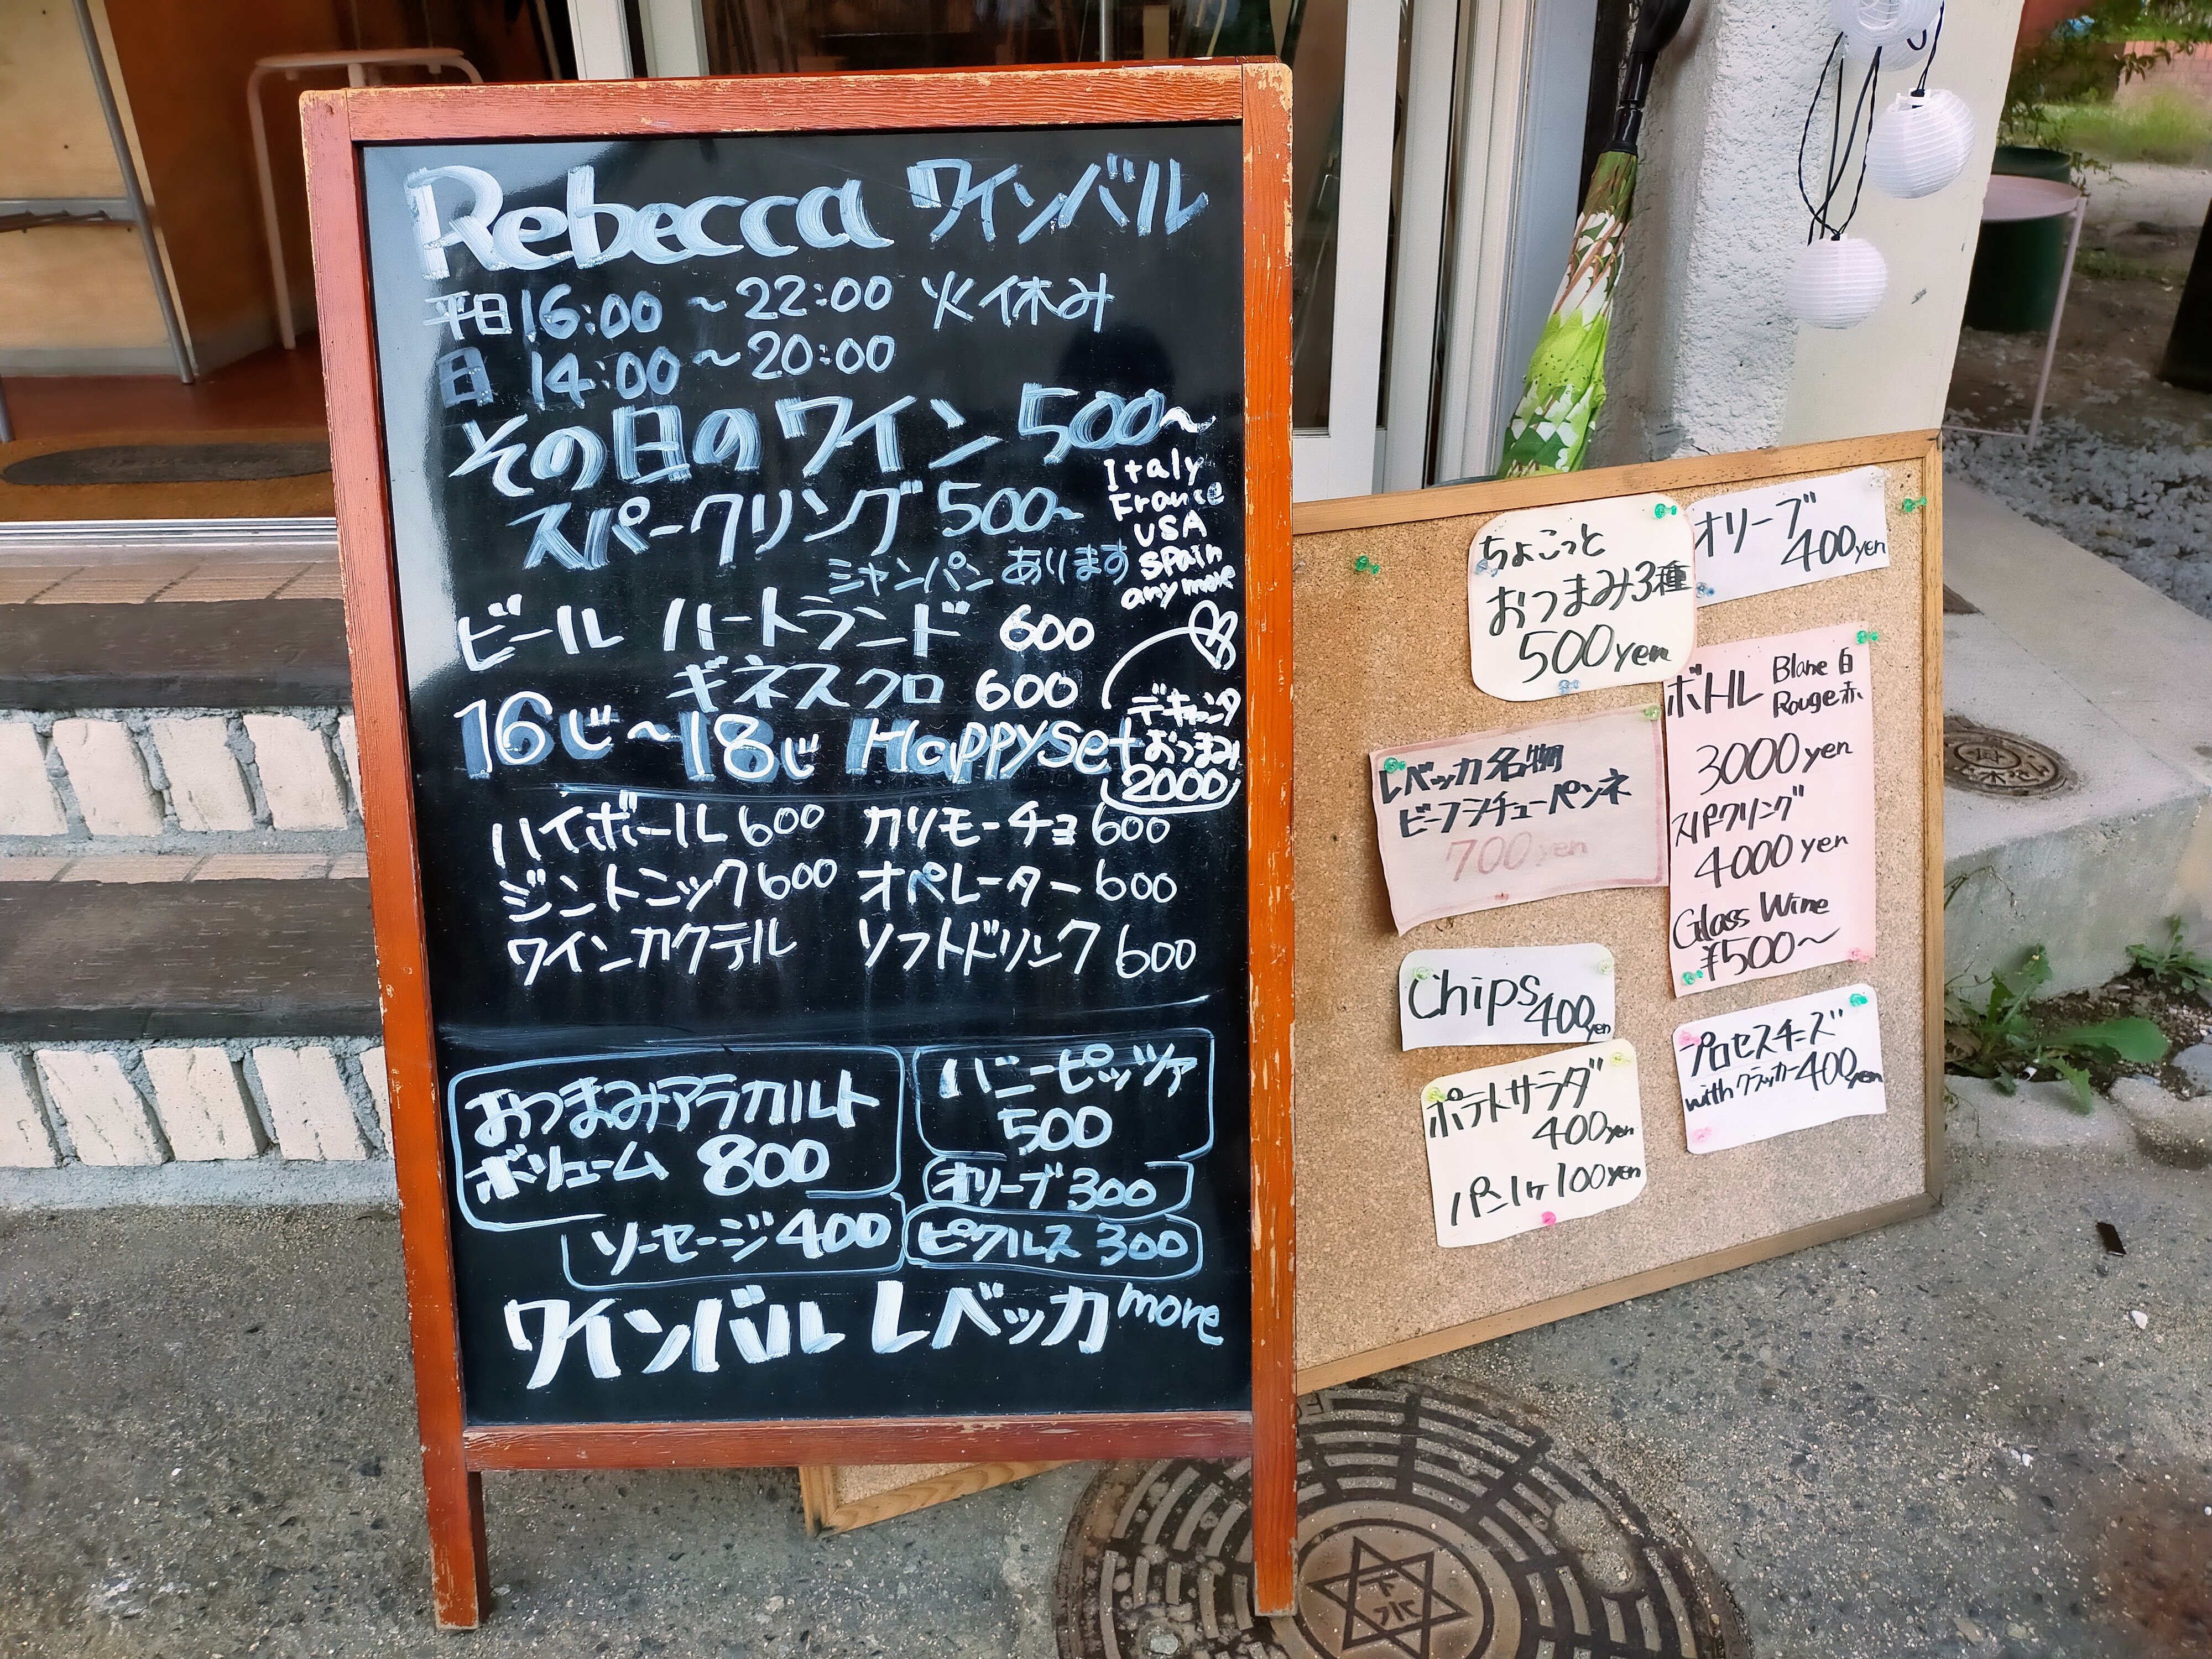 Rebecca ワインバル
平日 16:00 ~ 22:00 火休み
日 14:00~20:00
その日のワイン 500~
スパークリング 500~
シャンパン あります
Italy
France
USA
Spain
any more
ビール ハートランド 600
ギネスクロ 600
16じ~18じ Happy set
デキャンタ
おつまみ
2000
ハイボール 600 カリモーチョ 600
ジントニック 600 オペレーター 600
ワインカクテル ソフトドリンク 600
おつまみアラカルト
ボリューム 800
ハニーピッツァ
500
オリーブ 300
ソーセージ 400
ピクルス 300
ワインバル レベッカ more
ちょこっと
おつまみ3種
500yen
オリーブ
400yen
レベッカ名物
ビーフシチューペンネ
700yen
ボトル Blanc 白
Rouge 赤
3000yen
スパクリング
4000yen
Glass Wine
¥500~
Chips 400yen
ポテトサラダ
400yen
パン1ヶ100yen
プロセスチーズ
with クラッカー 400yen
下水